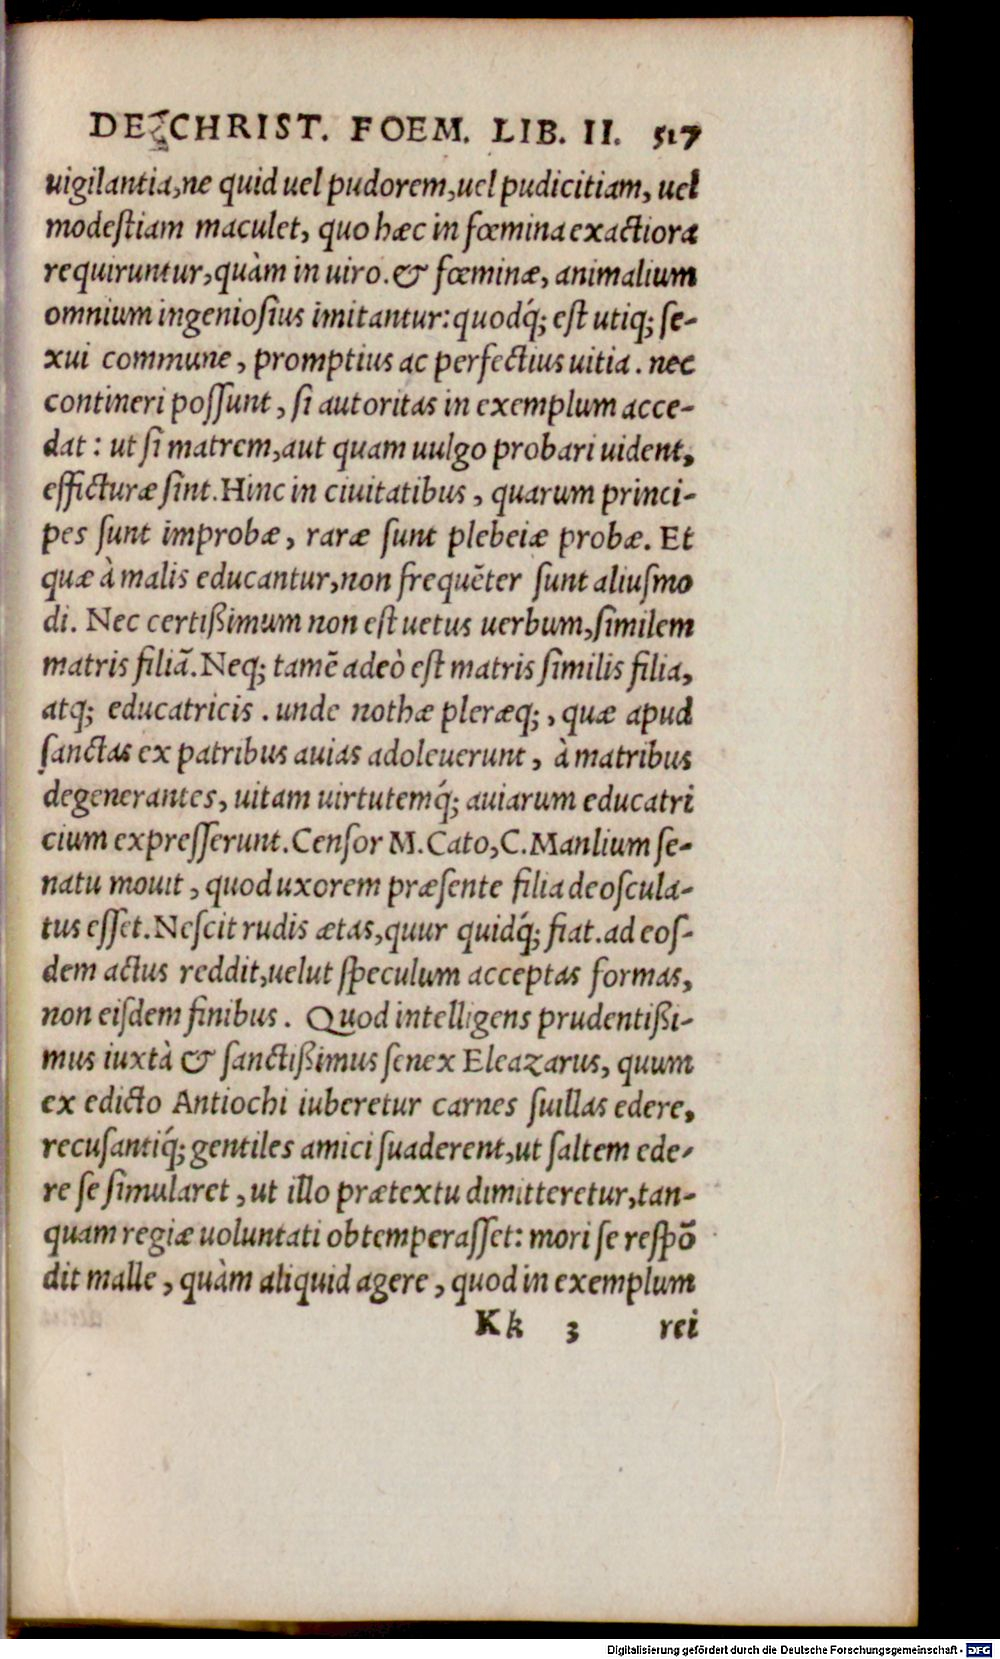 DE CHRIST. FOEM. LIB. II. 517
uigilantia, ne quid uel pudorem, uel pudicitiam, uel
modeſtiam maculet, quo hæc in fœmina exactiora
requiruntur, quàm in uiro. & fœminæ, animalium
omnium ingenioſius imitantur: quodq́; eſt utiq; ſe-
xui commune, promptius ac perfectius uitia. nec
contineri poſſunt, ſi autoritas in exemplum acce-
dat: ut ſi matrem, aut quam uulgo probari uident,
efficturæ ſint. Hinc in ciuitatibus, quarum princi-
pes ſunt improbæ, raræ ſunt plebeiæ probæ. Et
quæ à malis educantur, non frequẽter ſunt aliuſmo
di. Nec certißimum non eſt uetus uerbum, ſimilem
matris filiã. Neq; tamẽ adeò eſt matris ſimilis filia,
atq; educatricis. unde nothæ pleræq;, quæ apud
ſanctas ex patribus auias adoleuerunt, à matribus
degenerantes, uitam uirtutemq́; auiarum educatri
cium expreſſerunt. Cenſor M. Cato, C. Manlium ſe-
natu mouit, quod uxorem præſente filia deoscula-
tus eſſet. Neſcit rudis ætas, quur quidq́; fiat. ad eoſ-
dem actus reddit, uelut ſpeculum acceptas formas,
non eiſdem finibus. Quod intelligens prudentißi-
mus iuxtà & ſanctißimus ſenex Eleazarus, quum
ex edicto Antiochi iuberetur carnes ſuillas edere,
recuſantiq́; gentiles amici ſuaderent, ut ſaltem ede-
re ſe ſimularet, ut illo prætextu dimitteretur, tan-
quam regiæ uoluntati obtemperaſſet: mori ſe reſpõ
dit malle, quàm aliquid agere, quod in exemplum
Kk 3 rei
Digitalisierung gefördert durch die Deutsche Forschungsgemeinschaft - DFG